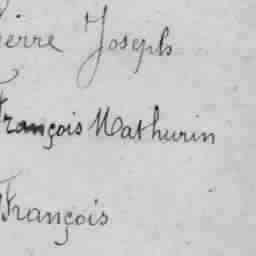 ierre Joseph
François Mathurin
François